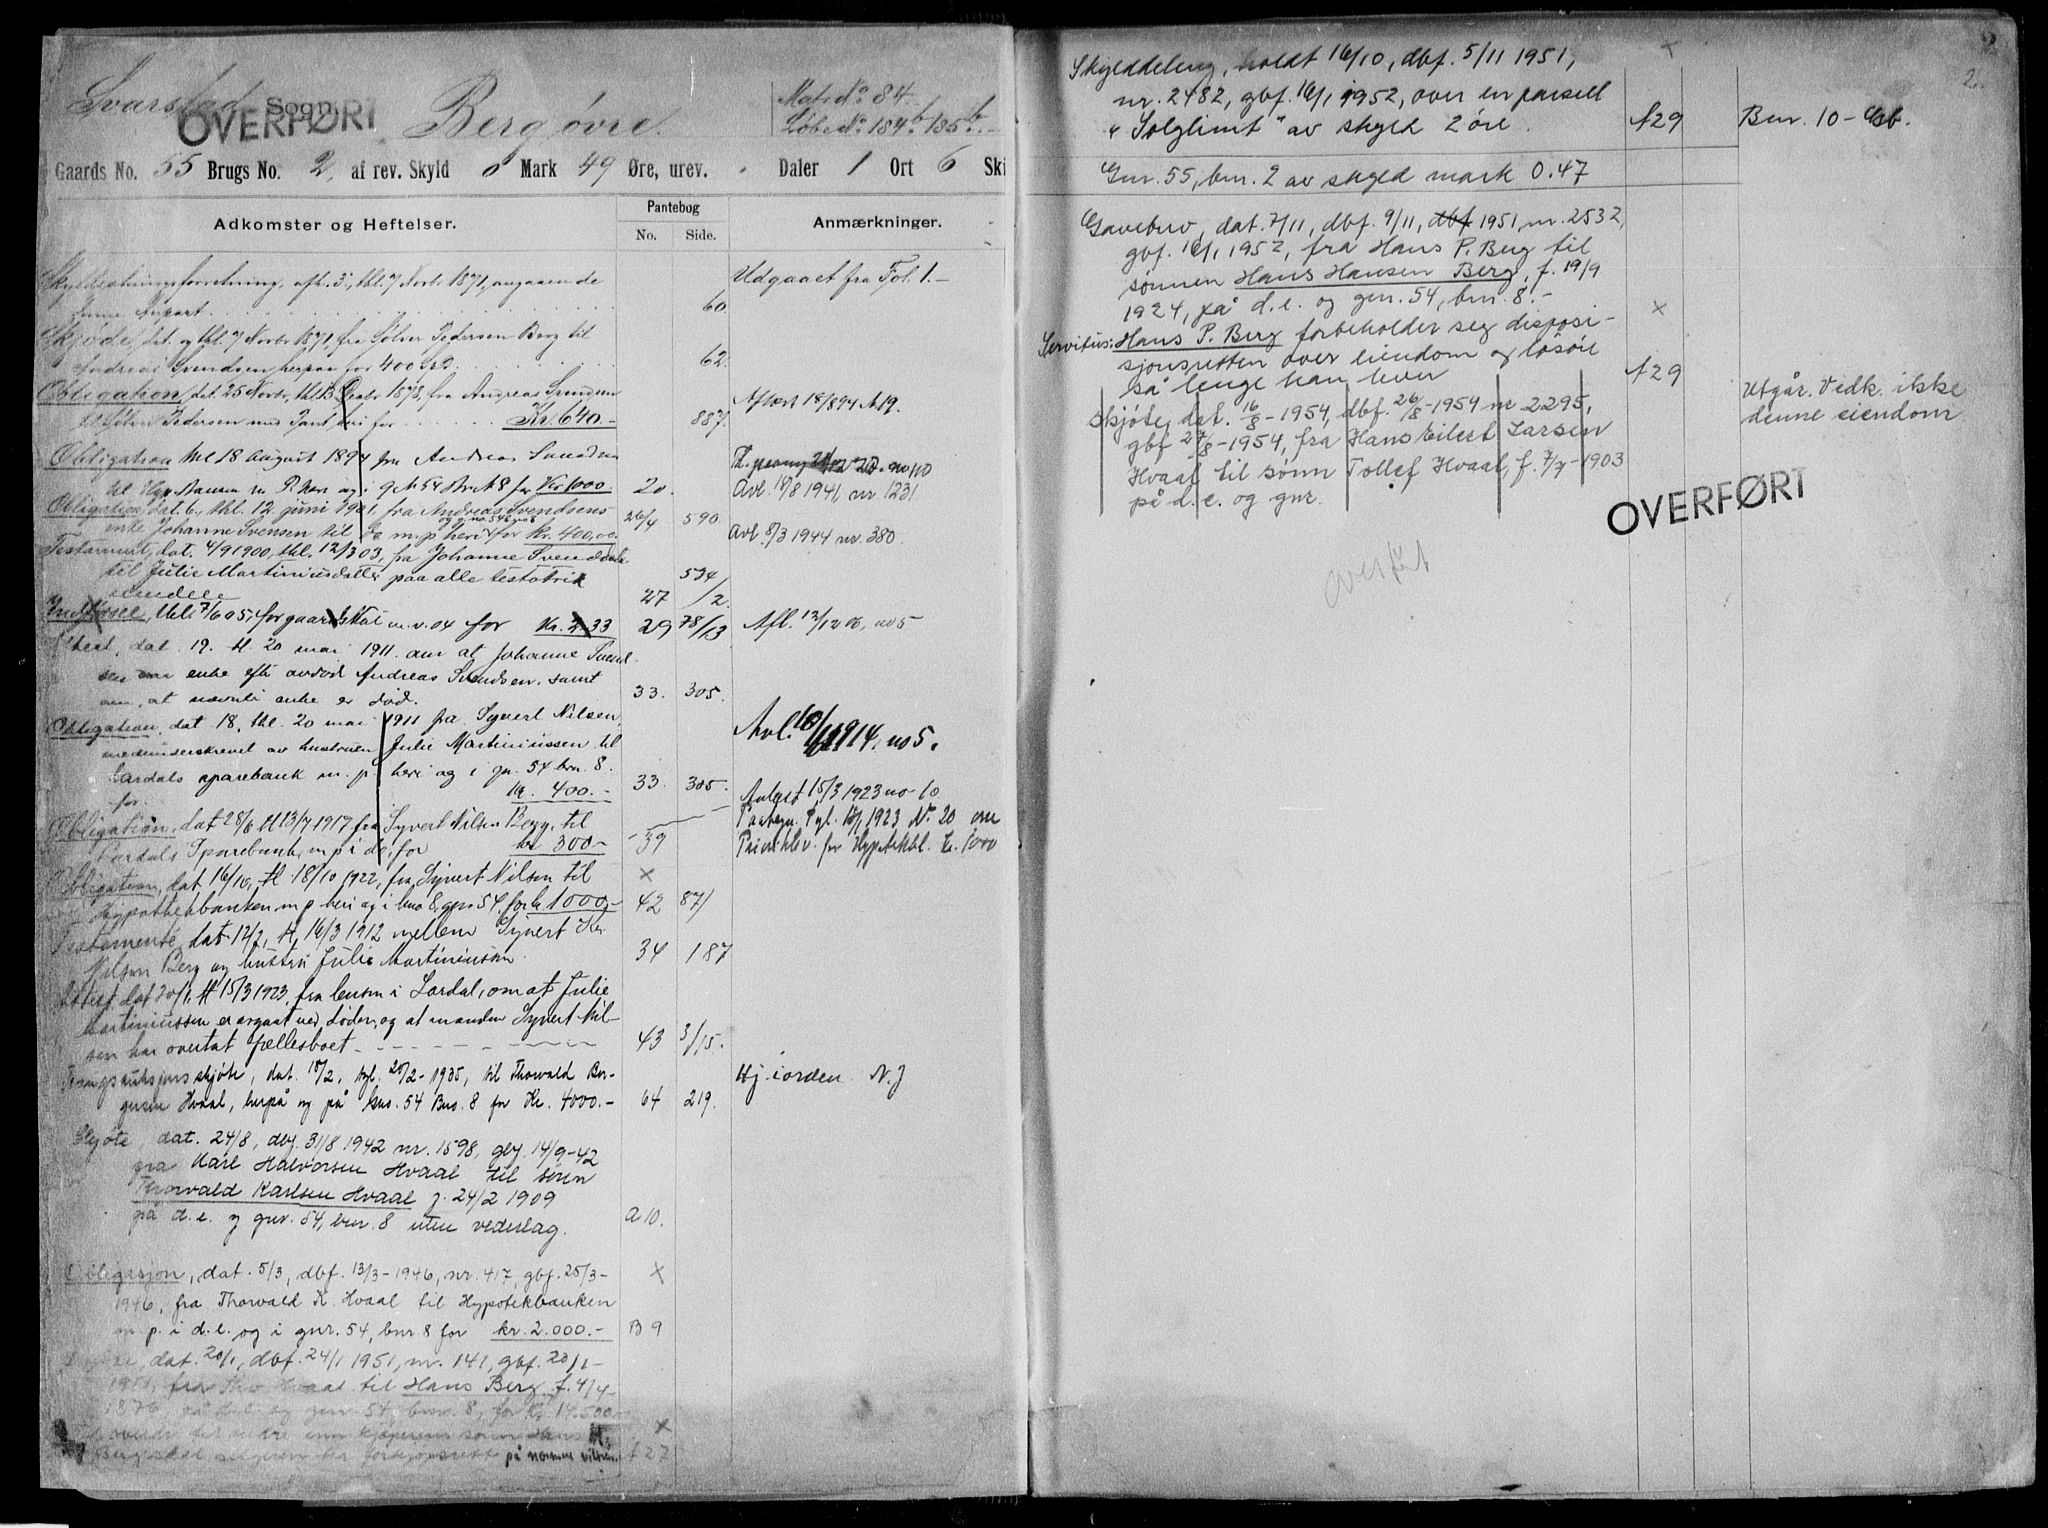 Svarstad Sogn
OVERFØRT
Berg øvre.
Mat. No. 84.
Løbe No. 184 b, 185 b.
Gaards No. 55 Brugs No. 2, af rev. Skyld 0 Mark 49 Øre, urev. - Daler 1 Ort 6 Ski
Adkomster og Heftelser.
Pantebog
No. Side.
Anmærkninger.
Skyldsætningsforretning, afh. 3, thl. 7 Novbr 1871, angaaende
denne Anpart
60.
Udgaaet fra Fol. 1.-
Skjøde, dat. og thl. 7 Novbr. 1871, fra Sølver Pedersen Berg til
Andreas Svendsen herpaa for 400 Spd.
62.
Obligation, dat. 25 Novbr, thl. Decbr 1878, fra Andreas Svendsen
til Sølver Pedersen med Pant heri for Kr. 640.-
887.
Aflæst 18/8 94 No 19.
Obligation thl 18 august 1894 fra Andreas Svendsen
til Hyp. Banken m P. heri og i g No 54 br No 8 for Kr 1000.
20.
Avl. 18/8 1941, nr 1231.
Obligation, dat. 6, thl. 12 juni 1901, fra Andreas Svendsens
og g.no. 54 b.no 8
enke Johanne Svensen til m. p heri for kr. 400,00.
26/4 590.
Avl. 8/3 1944 nr. 380.
Testament, dat. 4/9 1900, thl. 12/3 03, fra Johanne Svendsen
til Julie Martiniusdatter paa alle testatrix
eiendele
27 534/2.
thl. 7/6 05, for gaards No m. v. 04 for Kr. 33
29 78/13
Afl. 12/12 06, no 5
Attest, dat. 19. tl. 20 mai 1911. om at Johanne Svend-
sen enke efter avdøde Andreas Svendsen, samt
om, at nævnte enke er død.
33. 305.
Obligation, dat 18, thl. 20 mai 1911 fra Syvert Nilsen,
medunderskrevet av hustruen Julie Martiniussen til
Lardals sparebank m. p. heri og i gn. 54 bn. 8.
for. kr. 400.-
33. 305.
Avl. 10/11 1914, no 5.
Obligation, dat 28/6 tl 13/7 1917 fra Syvert Nilsen Berg, til
Lardals Sparebank, m p i do, for kr 300-
-39
Avlæst 15/3 1923 no 10
Obligation, dat 16/10, tl 18/10 1922, fra Syvert Nilsen til
Hypothekbanken m p heri og i bno 8, gno 54, for kr 1000,-
×
42 87/
1923 No 20 om
Prioritetsv. for Hypotekbl. Kr. 1000
Testamente, dat 12/2, tl, 16/3 1912 mellem Syvert
Nilsen Berg og hustru Julie Martiniussen.
34 187
Attest dat 20/1, tl 15/3 1923, fra lensm i Lardal, om at Julie
Martiniussen er avgaat ved Døden, og at manden Syvert Nil-
sen har overtat fællesboet
43 3/15.
Tvangsauksjonsskjøte, dat. 18/2, tgl. 20/2-1935, til Thorvald Bor-
gersen Hvaal, herpå og på Gno. 54 Bno. 8 for Kr. 4000.-
64 219.
Hj. i orden N. J
Skjøte, dat. 24/8, dbf. 31/8 1942 nr. 1598, gbf. 14/9-42
fra Karl Halvorsen Hvaal til sønn
Thorvald Karlsen Hvaal f. 24/2 1909
på d. e. og gnr. 54, bnr. 8 uten vederlag.
A 10.
Obligasjon, dat. 5/3, dbf. 13/3-1946, nr. 417, gbf. 25/3-
1946, fra Thorvald K. Hvaal til Hypotekbanken
m. p. i d. e. og i gnr. 54, bnr. 8 for kr. 2.000.-
×
B 9
dat. 20/1, dbf. 24/1 1951, nr. 141, gbf.
1951, fra Thv Hvaal til Hans Berg f. 4/4-
1876, på d. e. og gnr. 54, bnr. 8, for Kr. 14.500
til andre enn kjøperens sønn Hans H.
Berg skal selgeren ha forkjøpsrett på samme vilkår.
×
A 27
2.
Skylddeling, holdt 16/10, dbf. 5/11 1951,
nr. 2482, gbf. 16/1 1952, over en parsell
"Solglimt" av skyld 2 øre.
×
A 29
Bnr. 10 -
Gnr. 55, bnr. 2 av skyld mark 0.47
Gavebrev, dat. 7/11, dbf. 9/11, dbf 1951, nr. 2532,
gbf. 16/1 1952, fra Hans P. Berg til
sønnen Hans Hansen Berg, f. 19/9
1924, på d. e. og gnr. 54, bnr. 8.-
×
Servitus: Hans P. Berg forbeholder seg disposi-
sjonsretten over eiendom og løsøre
så lenge han lever
A 29
Skjøte, dat. 16/8-1954, dbf. 26/8-1954 nr 2295,
gbf 27/8-1954, fra Hans Eilert Larsen
Hvaal til sønn Tollef Hvaal, f. 7/7-1903
på d. e. og gnr.
Utgår. Vedk. ikke
denne eiendom
OVERFØRT
overført